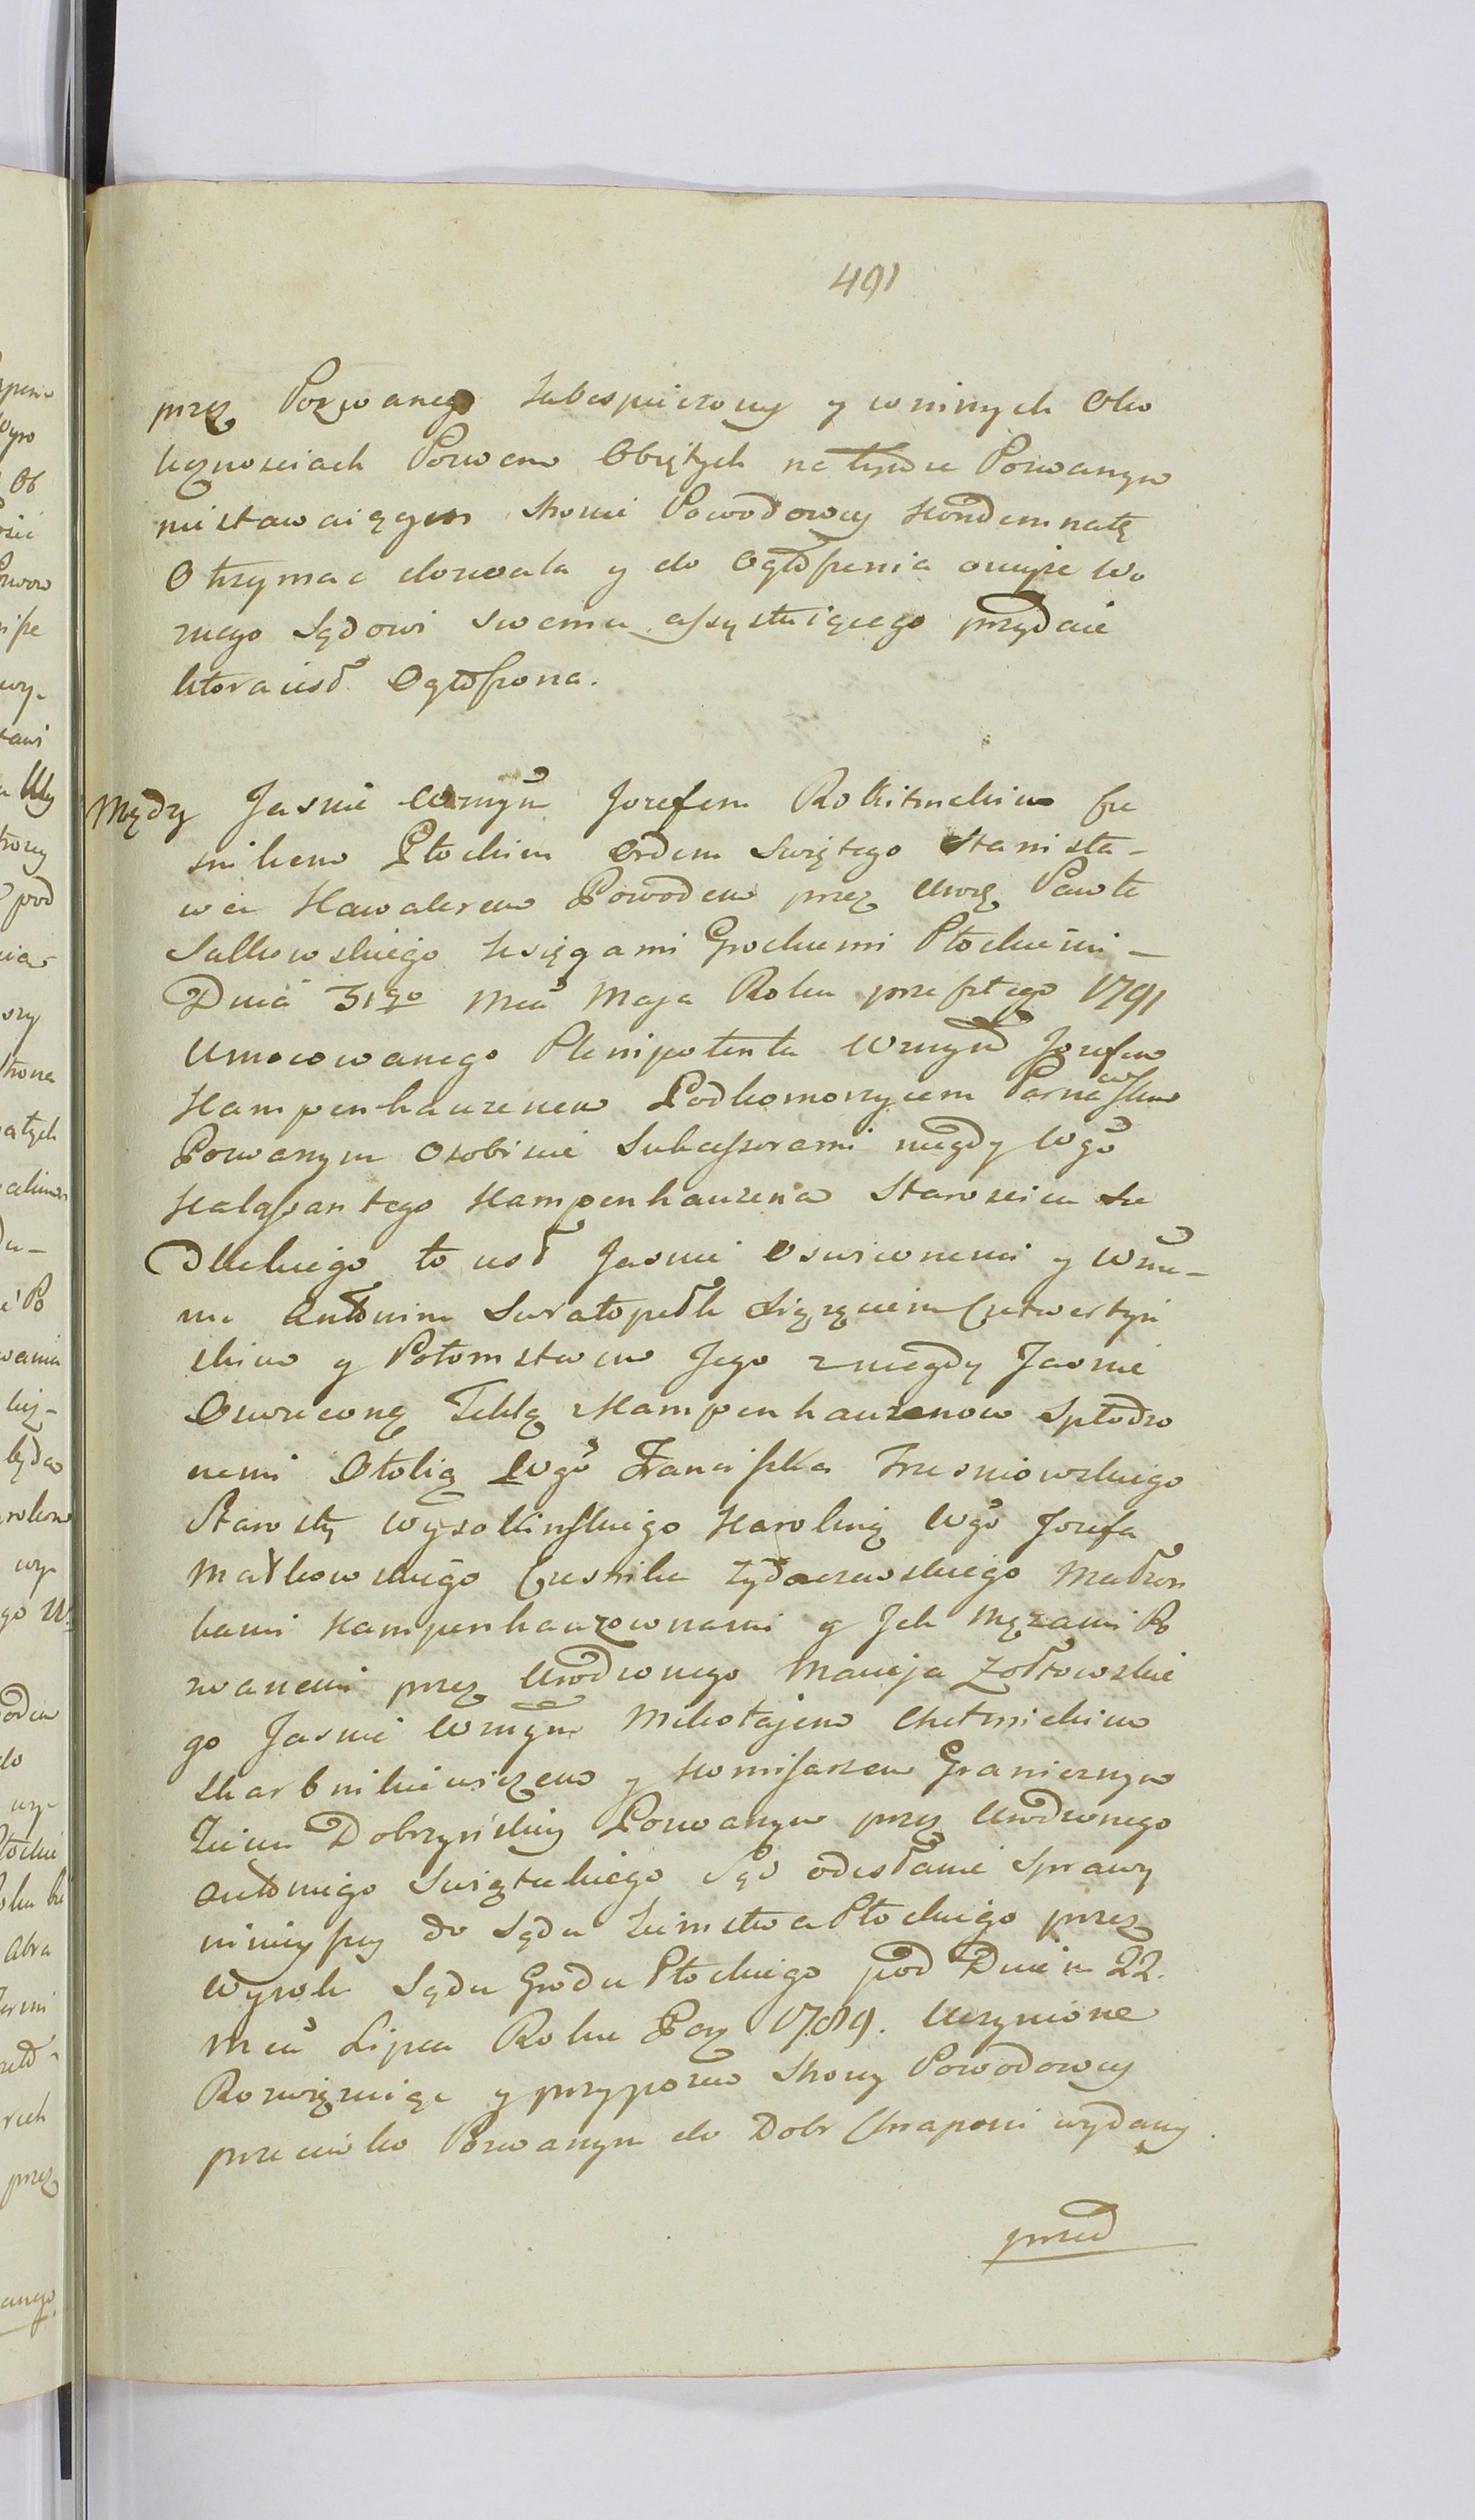 491
przez Pozwanego zabespieczony y w innych Oko
licznosciach Pozwem Obiętych na tymże Pozwanym
niestawaiącym stronie Powodowey Kondemnatę
Otrzymac dozwala y do Ogłoszenia oneyże Wo
znego Sądowi swemu assystuiącego przydaie
ktora iest Ogłoszona.
Między Jasnie Wmym Jozefem Rokitnickim Cze
snikem Płockim Orderu Swiętego Stanisła-
wa Kawalerem Powodem przez Urod Pawła
Sulkowskiego Xsięgami Grodzkiemi Płockiemi -
Dnia 31go Mca Maja Roku przeszłego 1791
Umocowanego Plenipotenta Wmym Jozefem
Kampenhauzenem Podkomorzycem Parnawskim
Pozwanym Osobiscie Sukcessorami niegdy Wgo
Kalassantego Kampenhauzena Staroscica
to iest Jasnie Oswieconemi y Wmi-
mi Antonim Swiatopełk Xiążęciem Czetwertyń
skim y Potomstwem Jego z niegdy Jasnie
Oswieconą Teklą z Kampenhauzenow Spłodzo
nemi Otolią Wgo Franciszka Trzesniowskiego
Starosty Wysokinskiego Karoliną Wgo Jozefa
Małkowskiego Czesnika Zydaczewskiego Małżon
kami Kampenhauzownami y Jch Mężami Po
zwanemi przez Urodzonego Macieja Zołtowskie
go Jasnie Wmym Mikołajem Chełmickim
Skarbnikiewiczem y Komisarzem Granicznym
Ziemi Dobrzyńskiey Pozwanym przez Urodzonego
Antoniego Swięcickiego Sąd odesłanie Sprawy
ninieyszey do Sądu Ziemstwa Płockiego przez
Wyrok Sądu Grodu Płockiego pod Dniem 22.
Mca Lipca Roku Pan 1789. Uczynione
Rozwiązuiąc y przypozew Strony Powodowey
przeciwko Pozwanym do Dobr Chraponi wydany
przed